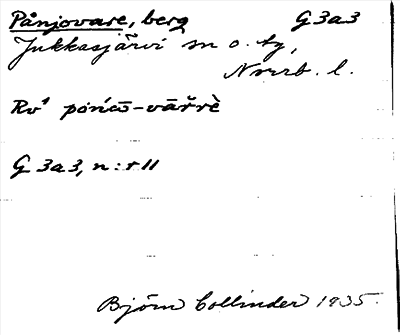 Pånjovare, berg G 3a3
Jukkasjärvi sn o. tg,
Norrb. l.
Rv¹ pońćō-vāřrè
G 3a3, n:r 11
Björn Collinder 1935.